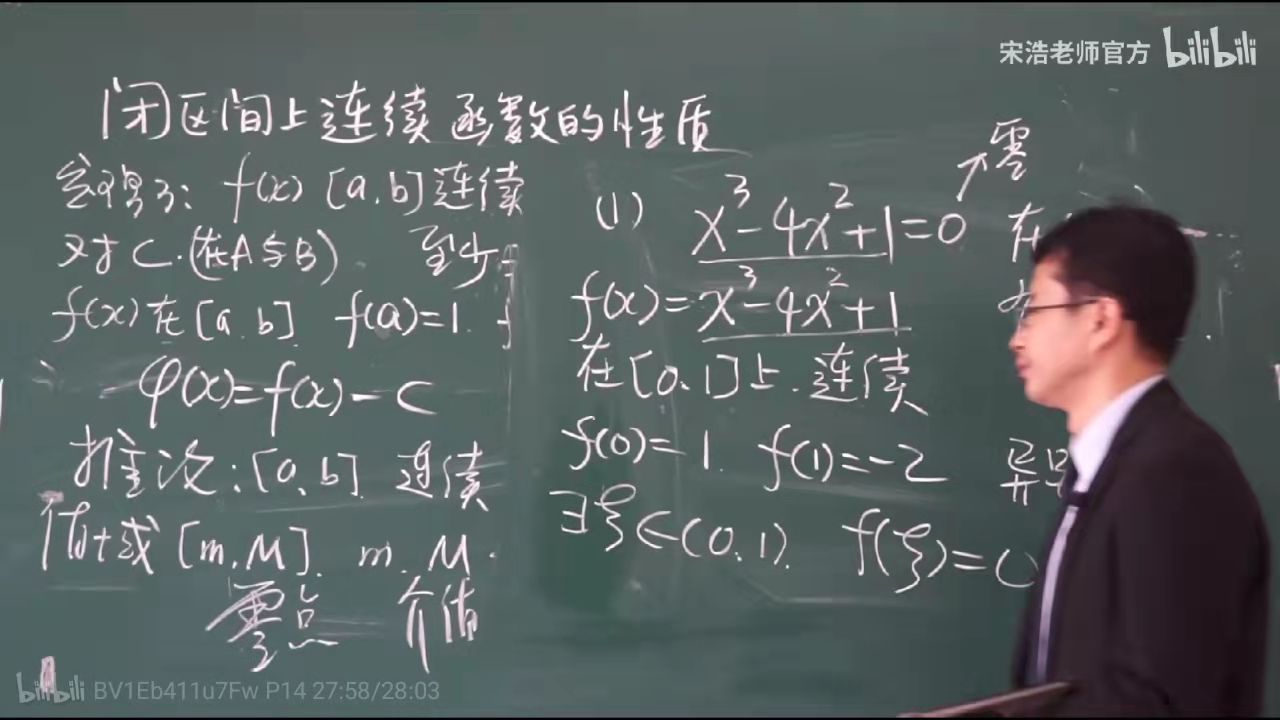 宋浩老师官方 bilibili
闭区间上连续函数的性质
f(x) [a,b]连续
对C.(在A与B) 至少
f(x)在[a,b] f(a)=1.
φ(x)=f(x)-C
推论:[a,b] 连续
值域[m,M] m.M.
零点 介值
零
(1) x³-4x²+1=0 在
f(x)=x³-4x²+1
在[0,1]上.连续
f(0)=1. f(1)=-2 异号
∃ξ∈(0,1). f(ξ)=0
bilibili BV1Eb411u7Fw P14 27:58/28:03